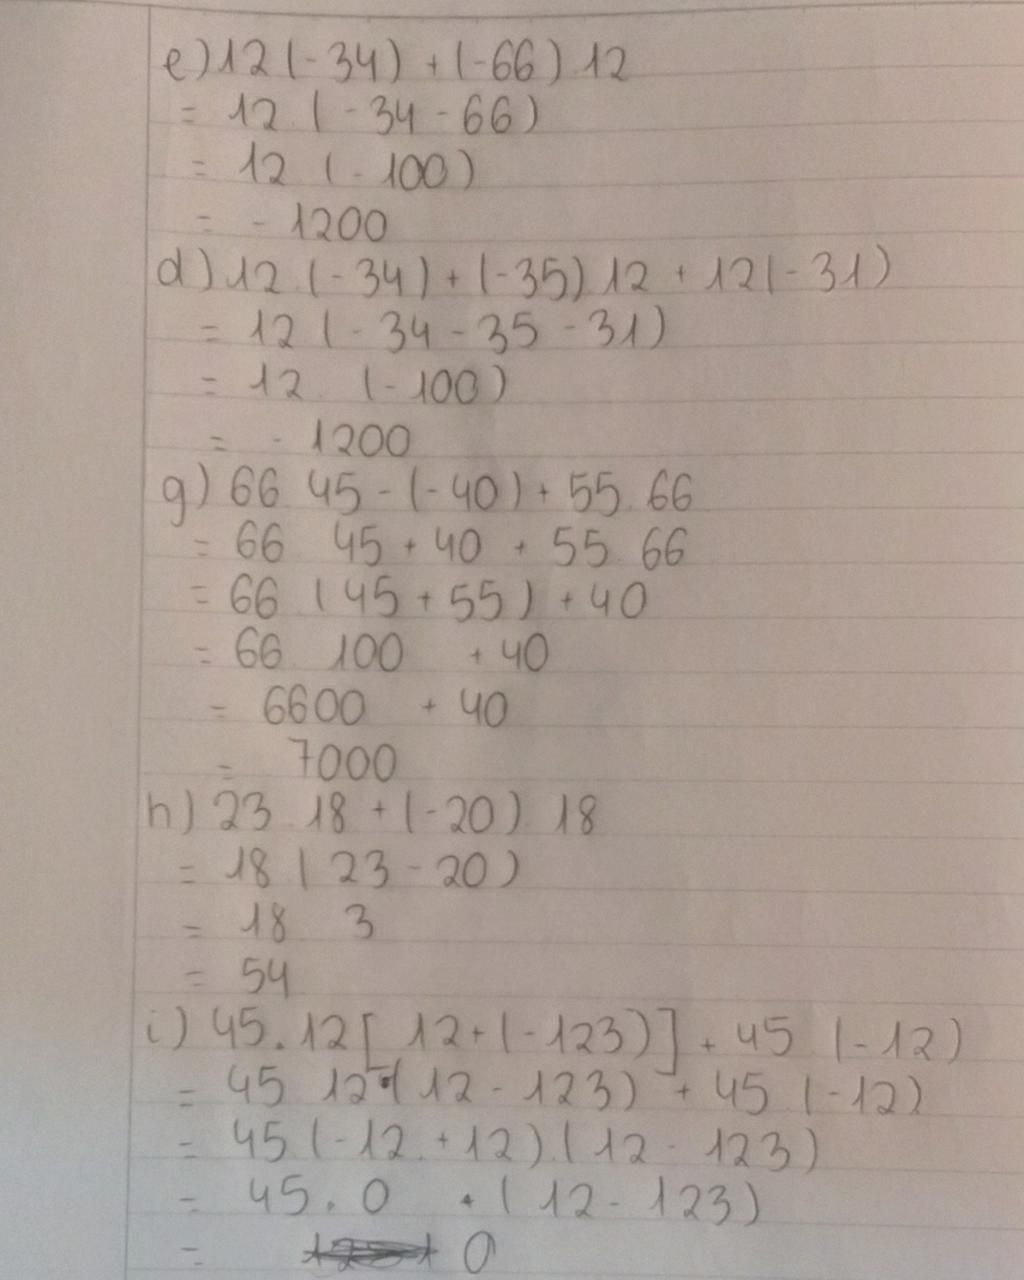 e) 12 (-34) + (-66) 12
= 12 (-34 - 66)
= 12 (-100)
= -1200
d) 12 (-34) + (-35) 12 + 12(-31)
= 12 (-34 - 35 - 31)
= 12 (-100)
= -1200
g) 66 45 - (-40) + 55.66
= 66 45 + 40 + 55 66
= 66 (45 + 55) + 40
= 66 100 + 40
= 6600 + 40
= 7000
h) 23 18 + (-20) 18
= 18 (23 - 20)
= 18 3
= 54
i) 45.12[12+(-123)] + 45 (-12)
= 45 12 (12 - 123) + 45 (-12)
= 45 (-12 + 12).(12 - 123)
= 45.0 . (12 - 123)
= 0